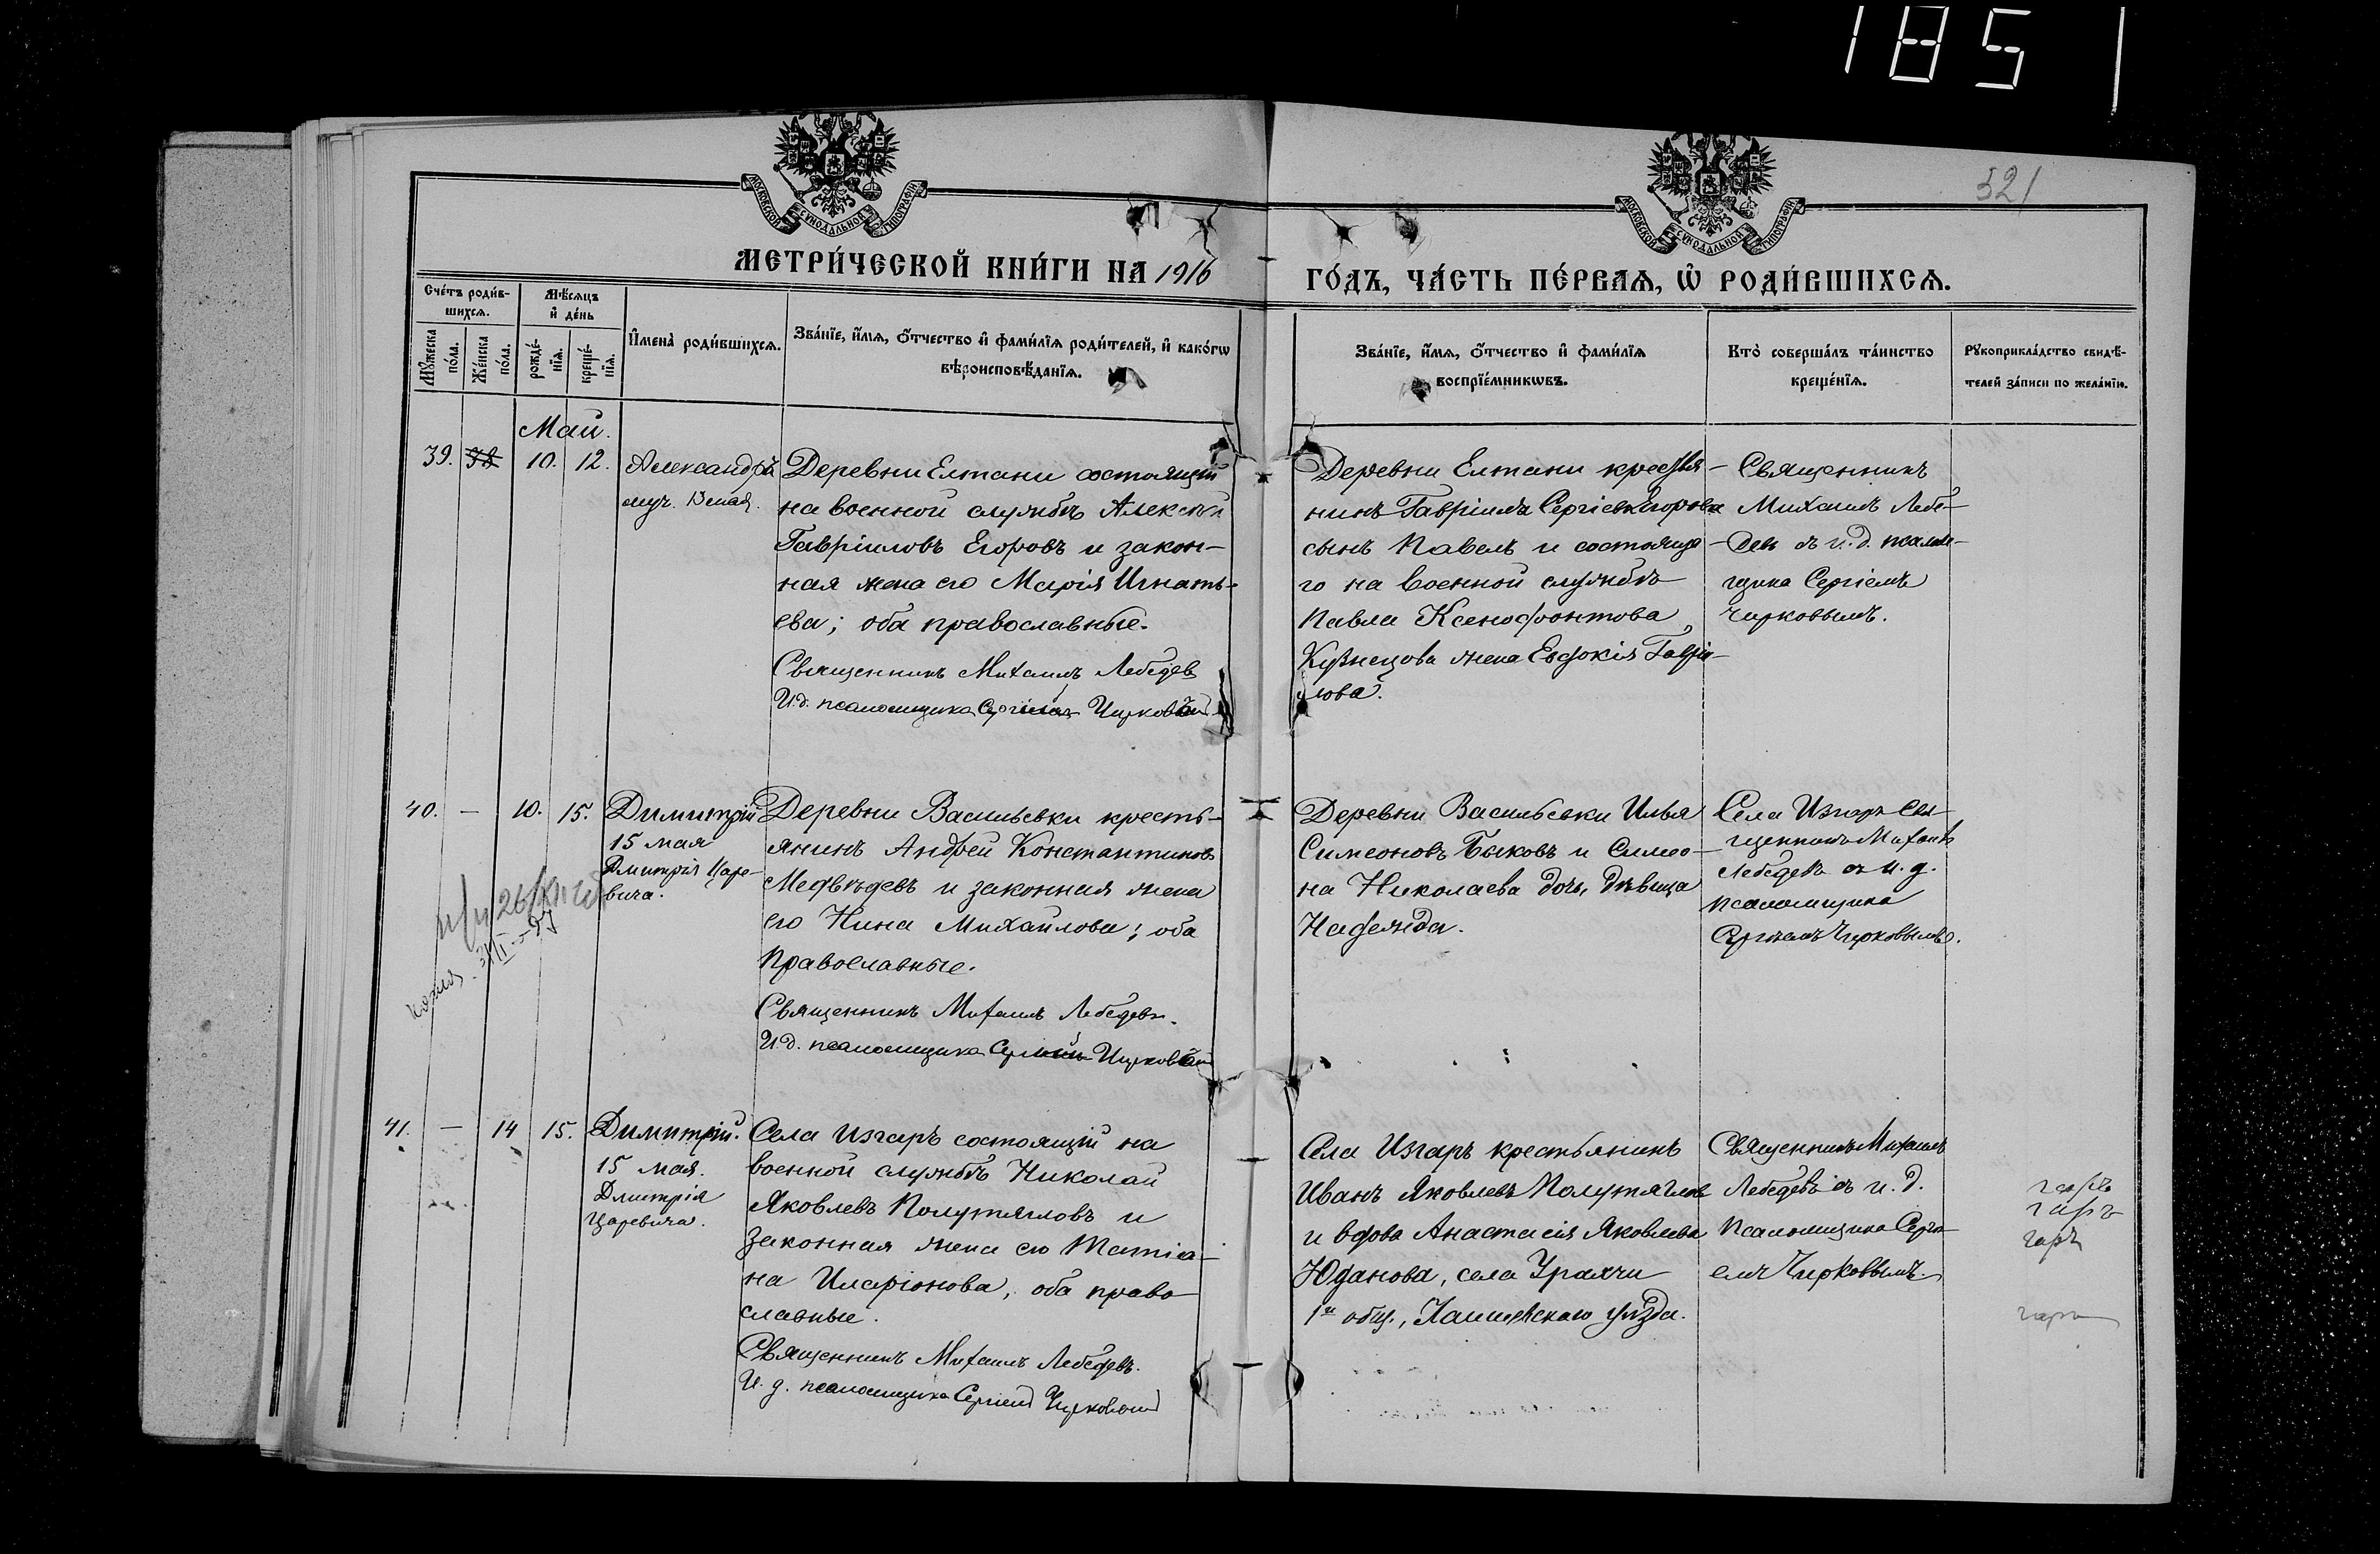 1851
321
МОСКОВСКОЙ СѴНОДАЛЬНОЙ ТИПОГРАФІИ
МОСКОВСКОЙ СѴНОДАЛЬНОЙ ТИПОГРАФІИ
МЕТРИ́ЧЕСКОЙ КНИ́ГИ НА 1916
ГО́ДЪ, ЧА́СТЬ ПЕ́РВАѦ, Ѽ РОДИ́ВШИХСѦ.
Сче́тъ роди́в-
шихсѧ.
Мѣ́сѧцъ
и҆ де́нь
Мꙋ́жеска
по́ла.
Же́нска
по́ла.
рожде́-
нїѧ.
креще́-
нїѧ.
И҆мена̀ роди́вшихсѧ.
Зва́нїе, и҆́мѧ, ѻ҆́тчество и҆ фами́лїѧ роди́телей, и҆ како́гѡ
вѣроисповѣ́данїѧ.
Зва́нїе, и҆́мѧ, ѻ҆́тчество и҆ фами́лїѧ
воспрїе́мникѡвъ.
Кто̀ соверша́лъ та́инство
креще́нїѧ.
Рꙋкоприкла́дство свидѣ́-
телей за́писи по жела́нїю.
Май.
39. 38 10. 12.
Александръ
муч. 13 мая.
Деревни Елтани состоящій
на военной службѣ Алексѣй
Гавріиловъ Егоровъ и закон-
ная жена его Марія Игнать-
ева; оба православные.
Священникъ Михаилъ Лебедев
И.д. псаломщика Сергій Чирков
Деревни Елтани крестья-
нинъ Гавріила Сергіева Егорова
сынъ Павелъ и состояща-
го на военной службѣ
Павла Ксенофонтова
Кузнецова жена Евдокія Гаврі-
лова.
Священникъ
Михаилъ Лебе-
девъ съ и.д. псалом-
щика Сергіемъ
Чирковымъ.
40. — 10. 15.
Димитрій
15 мая
Дмитрія Царе-
вича.
Деревни Васильевки кресть-
янинъ Андрей Константиновъ
Медвѣдевъ и законная жена
его Нина Михайлова; оба
православные.
Священникъ Михаилъ Лебедевъ.
И.д. псаломщика Сергій Чирков
Деревни Васильевки Илья
Симеоновъ Быковъ и Симео-
на Николаева дочь, дѣвица
Надежда.
Села Изгаръ Свя-
щенникъ Михаилъ
Лебедевъ съ и.д.
псаломщика
Сергіемъ Чирковымъ.
41. — 14 15.
Димитрій.
15 мая.
Дмитрія
Царевича.
Села Изгаръ состоящій на
военной службѣ Николай
Яковлевъ Полутягловъ и
законная жена его Татіа-
на Иларіонова, оба право-
славные.
Священникъ Михаилъ Лебедевъ.
И.д. псаломщика Сергій Чирков
Села Изгаръ крестьянинъ
Иванъ Яковлевъ Полутягловъ
и вдова Анастасія Яковлева
Юданова, села Урахчи
1го общ., Лаишевскаго уѣзда.
Священникъ Михаилъ
Лебедевъ съ и.д.
псаломщика Сергі-
емъ Чирковымъ.
гаръ
гаръ
гаръ
гаръ